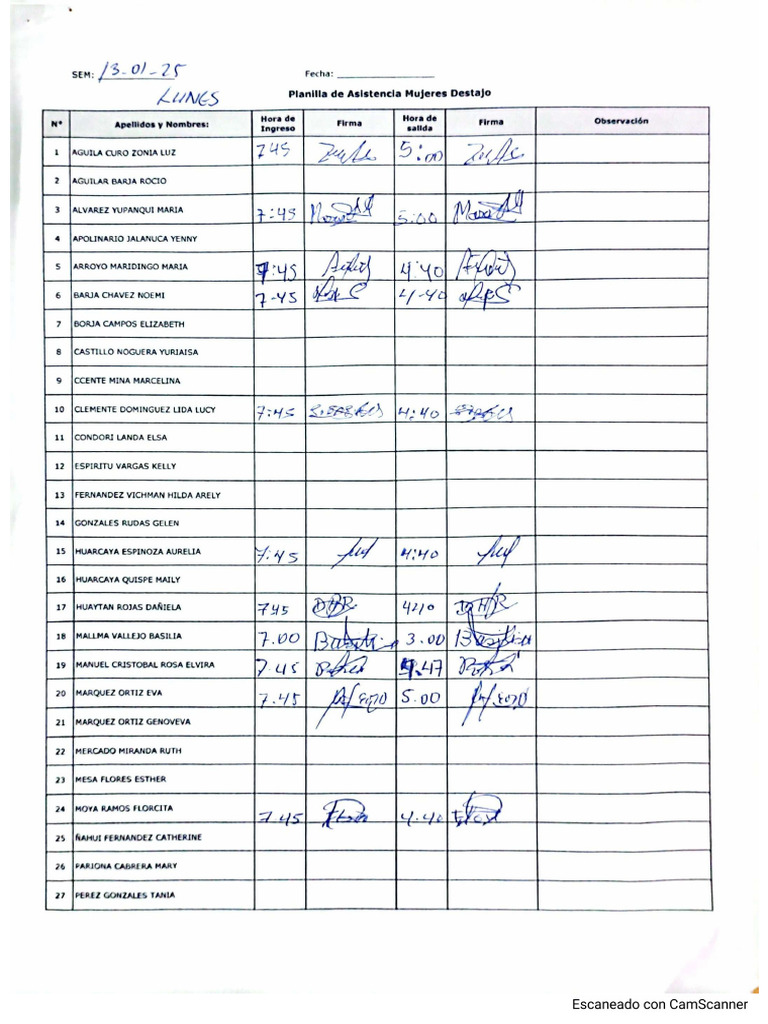 SEM: 13-01-25 Fecha:
LUNES Planilla de Asistencia Mujeres Destajo
N° Apellidos y Nombres: Hora de Ingreso Firma Hora de salida Firma Observación
1 AGUILA CURO ZONIA LUZ 745 5:00
2 AGUILAR BARJA ROCIO
3 ALVAREZ YUPANQUI MARIA 7:45 5:00
4 APOLINARIO JALANUCA YENNY
5 ARROYO MARIDINGO MARIA 7:45 4:40
6 BARJA CHAVEZ NOEMI 7-45 4-40
7 BORJA CAMPOS ELIZABETH
8 CASTILLO NOGUERA YURIAISA
9 CCENTE MINA MARCELINA
10 CLEMENTE DOMINGUEZ LIDA LUCY 7:45 4:40
11 CONDORI LANDA ELSA
12 ESPIRITU VARGAS KELLY
13 FERNANDEZ VICHMAN HILDA ARELY
14 GONZALES RUDAS GELEN
15 HUARCAYA ESPINOZA AURELIA 7:45 4:40
16 HUARCAYA QUISPE MAILY
17 HUAYTAN ROJAS DAÑIELA 745 DHR DHR
18 MALLMA VALLEJO BASILIA 7.00 3.00 Basilia
19 MANUEL CRISTOBAL ROSA ELVIRA 7.45 4.47
20 MARQUEZ ORTIZ EVA 7.45 5.00
21 MARQUEZ ORTIZ GENOVEVA
22 MERCADO MIRANDA RUTH
23 MESA FLORES ESTHER
24 MOYA RAMOS FLORCITA 7.45 4.40
25 ÑAHUI FERNANDEZ CATHERINE
26 PARIONA CABRERA MARY
27 PEREZ GONZALES TANIA
Escaneado con CamScanner